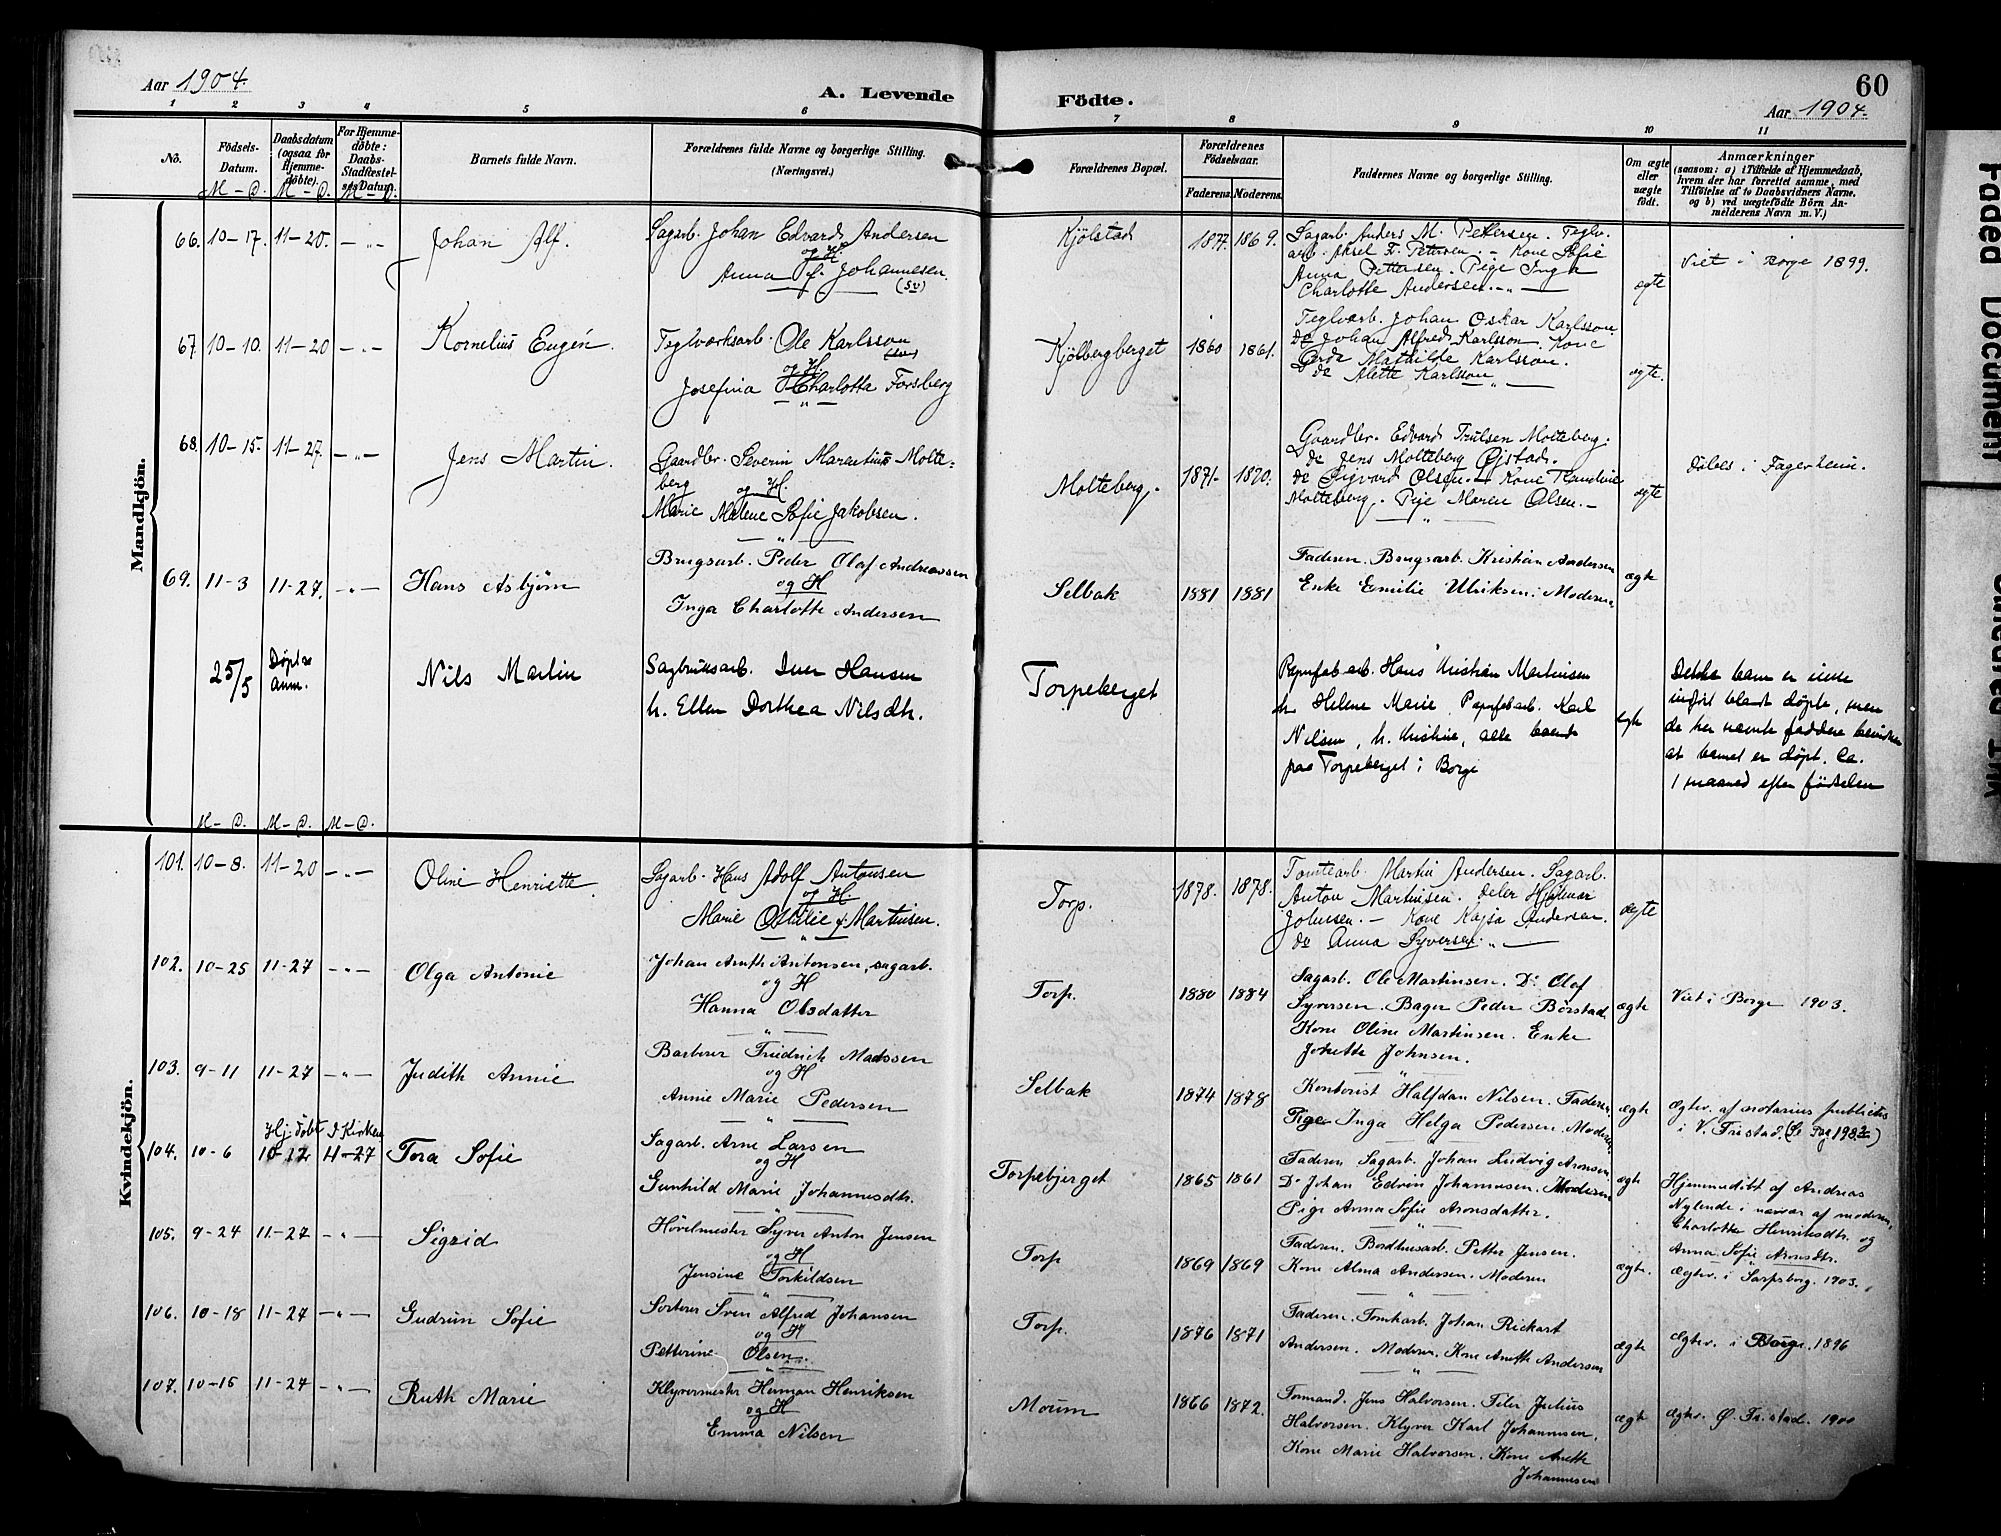 Aar 1904.
A. Levende Födte.
60
Aar 1904.
1 2 3 4 5 6 7 8 9 10 11
No.
Födsels-
Datum.
M – D.
Daabsdatum
(ogsaa for
Hjemme-
döbte).
M – D.
For Hjemme-
döbte:
Daabs-
Stadfæstel-
ses Datum.
M – D.
Barnets fulde Navn.
Forældrenes fulde Navne og borgerlige Stilling.
(Næringsvei.)
Forældrenes Bopæl.
Forældrenes
Födselsaar.
Faderens. Moderens.
Faddernes Navne og borgerlige Stilling.
Om ægte
eller
uægte
födt.
Anmærkninger
(saasom: a) i Tilfælde af Hjemmedaab,
hvem der har forrettet samme, med
Tilföielse af to Daabsvidners Navne,
og b) ved uægtefödte Börn An-
melderens Navn m. V.)
Mandkjön.
66. 10–17. 11–20. – „ –
Johan Alf.
Sagarb. Johan Edvard Andersen
og H.
Anna f. Johannesen
(Sv)
Kjölstad
1877. 1869.
Sagarb. Anders M. Pettersen. Teglv.
arb. Aksel Fr. Petersen. Kone Sofie
Anna Pettersen. Pige Inga
Charlotte Andersen. – „ –
ægte
Viet i Borge 1899.
67. 10–10. 11–20 – „ –
Kornelius Eugén.
Teglværksarb. Ole Karlsson
og H.
Josefina Charlotta Forsberg
Kjölbergberget
1860 1861.
Teglvarb. Johan Oskar Karlsson.
do Johan Alfred Karlsson. Kone
Gerda Mathilde Karlsson.
do Alette Karlsson
ægte.
68. 10–15. 11–27. – „ –
Jens Martin.
Gaardbr. Severin Marentius Molte-
berg
og H.
Marie Malene Sofie Jakobsen.
Molteberg.
1871– 1870.
Gaardbr. Edvard Trulsen Molteberg.
do Jens Molteberg Öjstad.
do Sigvard Olsen. – Kone Randine
Molteberg. Pige Maren Olsen. –
ægte
Döbes i Fagerheim.
69. 11–3 11–27. – „ –
Hans Asbjörn
Brugsarb. Peder Olaf Andreassen
og H
Inga Charlotte Andersen
Selbak
1881 1881
Faderen. Brugsarb. Kristian Andersen
Enke Emilie Ulriksen. Moderen
ægte
25/5
Döpt se
anm.
Nils Martin
Sagbruksarb. Iver Hansen
h. Ellen Dorthea Nilsdtr.
Torpeberget
Papirfab.arb. Hans Kristian Martinsen
h. Helene Marie, Papirfab.arb. Karl
Nilsen, h. Kristine, alle boende
paa Torpeberget i Borge
egte
Dette barn er ikke
indfört blandt döpte, men
de her nævnte faddere bevidner
at barnet er döpt. Ca.
1 maaned efter födselen
M – D. M – D. M – D.
Kvindekjön.
101. 10–8. 11–20 – „ –
Oline Henriette
Sagarb. Hans Adolf Antonsen
og H
Marie Othilie f. Martinsen.
Torp.
1878. 1878.
Tomtearb. Martin Andersen. Sagarb.
Anton Martinsen. Deler Hjalmar
Johnsen. – Kone Kajsa Andersen.
do Anna Syversen. – „ –
ægte
102. 10–25 11–27 – „ –
Olga Antonie
Johan Anth. Antonsen, sagarb.
og H
Hanna Olsdatter
Torp.
1880 1884
Sagarb. Ole Martinsen. Do Olaf
Syversen. Bager Peder Börstad.
Kone Oline Martinsen. Enke
Johette Johnsen.
ægte
Viet i Borge 1903.
103. 9–11 11–27 – „ –
Judith Annie
Barberer Friedrich Madssen
og H
Annie Marie Pedersen
Selbak
1874 1878
Kontorist Halfdan Nilsen. Faderen
Pige Inga Helga Pedersen. Moderen
ægte
Ægtev. af notarius publicus
i V. Fristad.
104. 10–6
Hj. döbt
10–12
I Kirken
11–27
Tora Sofie
Sagarb. Arne Larsen
og H
Gunhild Marie Johannesdtr.
Torpebjerget
1865 1861
Faderen Sagarb. Johan Ludvig Aronsen.
Do Johan Edvin Johannesen. Moderen
Pige Anna Sofie Aronsdatter.
ægte
Hjemmedöbt af Andreas
Nylende i nærvær af moderen,
Charlotte Henriksdtr. og
Anna Sofie Aronsdtr.
105. 9–24 11–27 – „ –
Sigrid
Hövelmester Syver Anton Jensen
og H
Jensine Torkildsen
Torp
1869 1869
Faderen. Bordhusarb. Petter Jensen.
Kone Alma Andersen. Moderen
ægte.
Ægtev. i Sarpsborg. 1903.
106. 10–18 11–27 – „ –
Gudrun Sofie
Sorterer Sven Alfred Johansen
og H
Petterine Olsen.
Torp.
1876 1871
Faderen. Tomtearb. Johan Rickart
Andersen. Moderen. Kone Anette Andersen
ægte
Ægtev. i Borge. 1896
107. 10–16 11–27 – „ –
Ruth Marie
Klyvermester Herman Henriksen
og H
Emma Nilsen
Moum
1866 1872.
Formand. Jens Halvorsen. Filer Julius
Halvorsen. Klyver Karl Johannesen.
Kone Marie Halvorsen. Kone Anette
Johannesen
ægte
Ægtev. Ø. Fristad. 1900
Faded Document